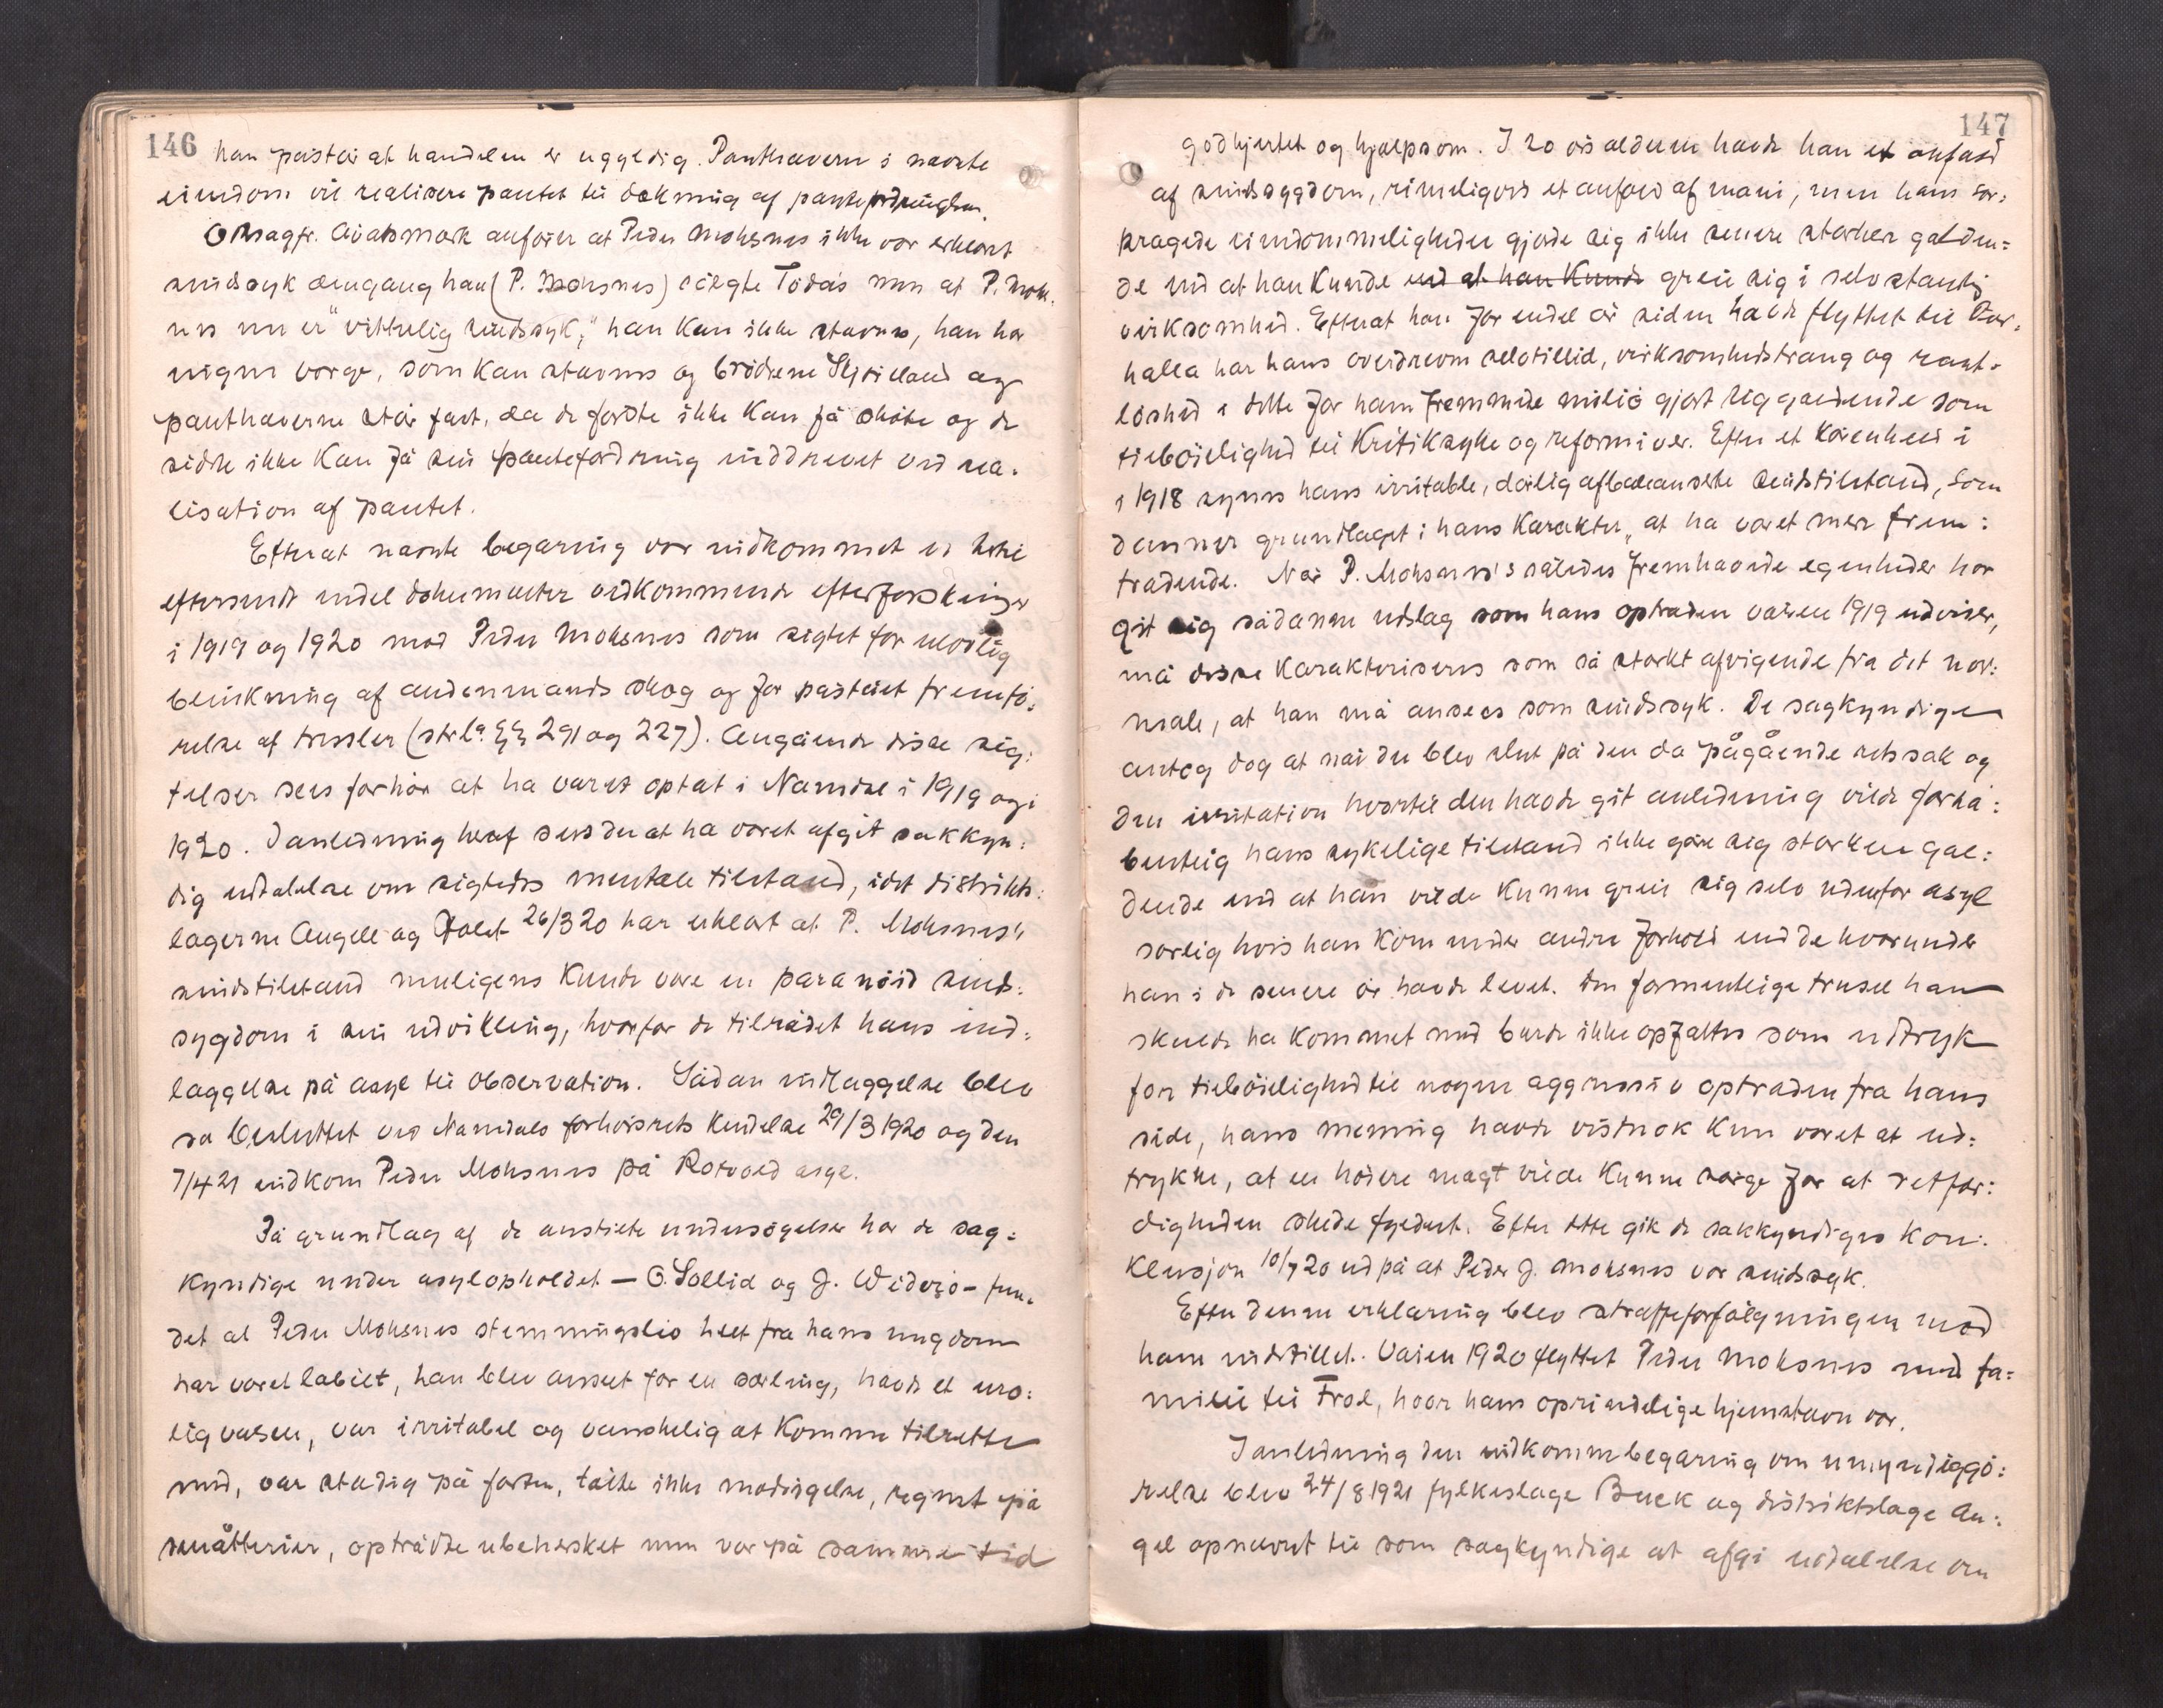 146
han påstår at handelen er ugyldig. Panthavern i nævnte
eiendom vil realisere pantet til dækning af pantefordringen.
O.r.sagfr. Aabsmark anfører at Peder Moksnes ikke var erklært
sindssyk dengang han (P. Moksnes) solgte Tødås men at P. Mok-
nes nu er "vitterlig sindssyk," han kan ikke stævnes, han har
ingen verge, som kan stævnes og brødrene og
panthaverne står fast, da de første ikke kan få skjöte og de
sidste ikke kan få sin pantefordring inddrevet ved rea-
lisation af pantet.
Efterat nævnte begæring var indkommet er hertil
eftersendt endel dokumenter vedkommende efterforskninger
i 1919 og 1920 mod Peder Moksnes som sigtet for ulovlig
blinkning af andenmands skog og for påstået fremfö-
relse af trusler (strl. §§ 291 og 227). Angående disse sig-
telser sees forhör at ha været optat i Namdal i 1919 og i
1920. I anledning heraf sees der at ha været afgit sakkyn-
dig uttalelse om sigtedes mentale tilstand, idet distrikts-
lægerne Angell og Dalet 26/3 20 har erklært at P. Moksnes's
sindstilstand muligens kunde være en paranoid sinds-
sygdom i sin udvikling, hvorfor de tilrådet hans ind-
læggelse på asyl til observation. Sådan indlæggelse blev
så besluttet ved Namdals forhörsrets kjendelse 29/3 1920 og den
7/4 21 indkom Peder Moksnes på Rotvold asyl.
På grundlag af de anstillte undersøgelser har de sag-
kyndige under asylopholdet — O. Sollid og J. Widerø — fun-
det at Peder Moksnes stemningsliv helt fra hans ungdom
har været labilt, han blev anseet for en særling, havde et uro-
lig væsen, var irritabel og vanskelig at komme tilrette
med, var stadig på farten, tålte ikke modsigelse, regnet på
småtterier, optrådte ubehersket men var på samme tid
147
godhjertet og hjælpsom. I 20 års alderen havde han et anfald
af sindssygdom, rimeligvis et anfald af mani, men hans sær-
prægede eiendommeligheder gjorde sig ikke senere stærkere gælden-
de end at han kunde end at han kunde greie sig i selvstændig
virksomhed. Efterat han for endel år siden havde flyttet til Over-
halla har hans overdrevne selvtillid, virksomhedstrang og rast-
löshed i dette for ham fremmede miliö gjort sig gjældende som
tilböielighed til kritiksyke og reformiver. Efter et uheld i
i 1918 synes hans irritable, dårlig afbalanserte sindstilstand, som
danner grundlaget i hans karakter, at ha været mere frem-
trædende. Når P. Moksnes's således fremhævede egenheder har
git sig sådanne udslag som hans optræden våren 1919 udviser,
må disse karakteriseres som så stærkt afvigende fra det nor-
male, at han må ansees som sindssyk. De sagkyndige
antog dog at når der blev slut på den da pågående retssak og
den irritation hvortil den havde git anledning vilde forhå-
bentlig hans sykelige tilstand ikke göre sig stærkere gjæl-
dende end at han vilde kunne greie sig selv udenfor asyl
særlig hvis han kom under andre forhold end de hvorunder
han i de senere år havde levet. Den formentlige trusel han
skulde ha kommet med burde ikke opfattes som udtryk
for tilböielighed til nogen aggressiv optræden fra hans
side, hans mening havde vistnok kun været at ud-
trykke, at en höiere magt vilde kunne sörge for at retfær-
digheden skede fyldest. Efter dette gik de sakkyndiges kon-
klusjon 10/7 20 ud på at Peder J. Moksnes var sindssyk.
Efter denne erklæring blev straffeforfölgningen mod
ham indstillet. Våren 1920 flyttet Peder Moksnes med fa-
milie til Frol, hvor hans oprindelige hjemstavn var.
I anledning den indkomne begæring om umyndiggjö-
relse blev 24/8 1921 fylkeslæge Buck og distriktslæge An-
gel opnævnt til som sagkyndige at afgi uddtalelse om